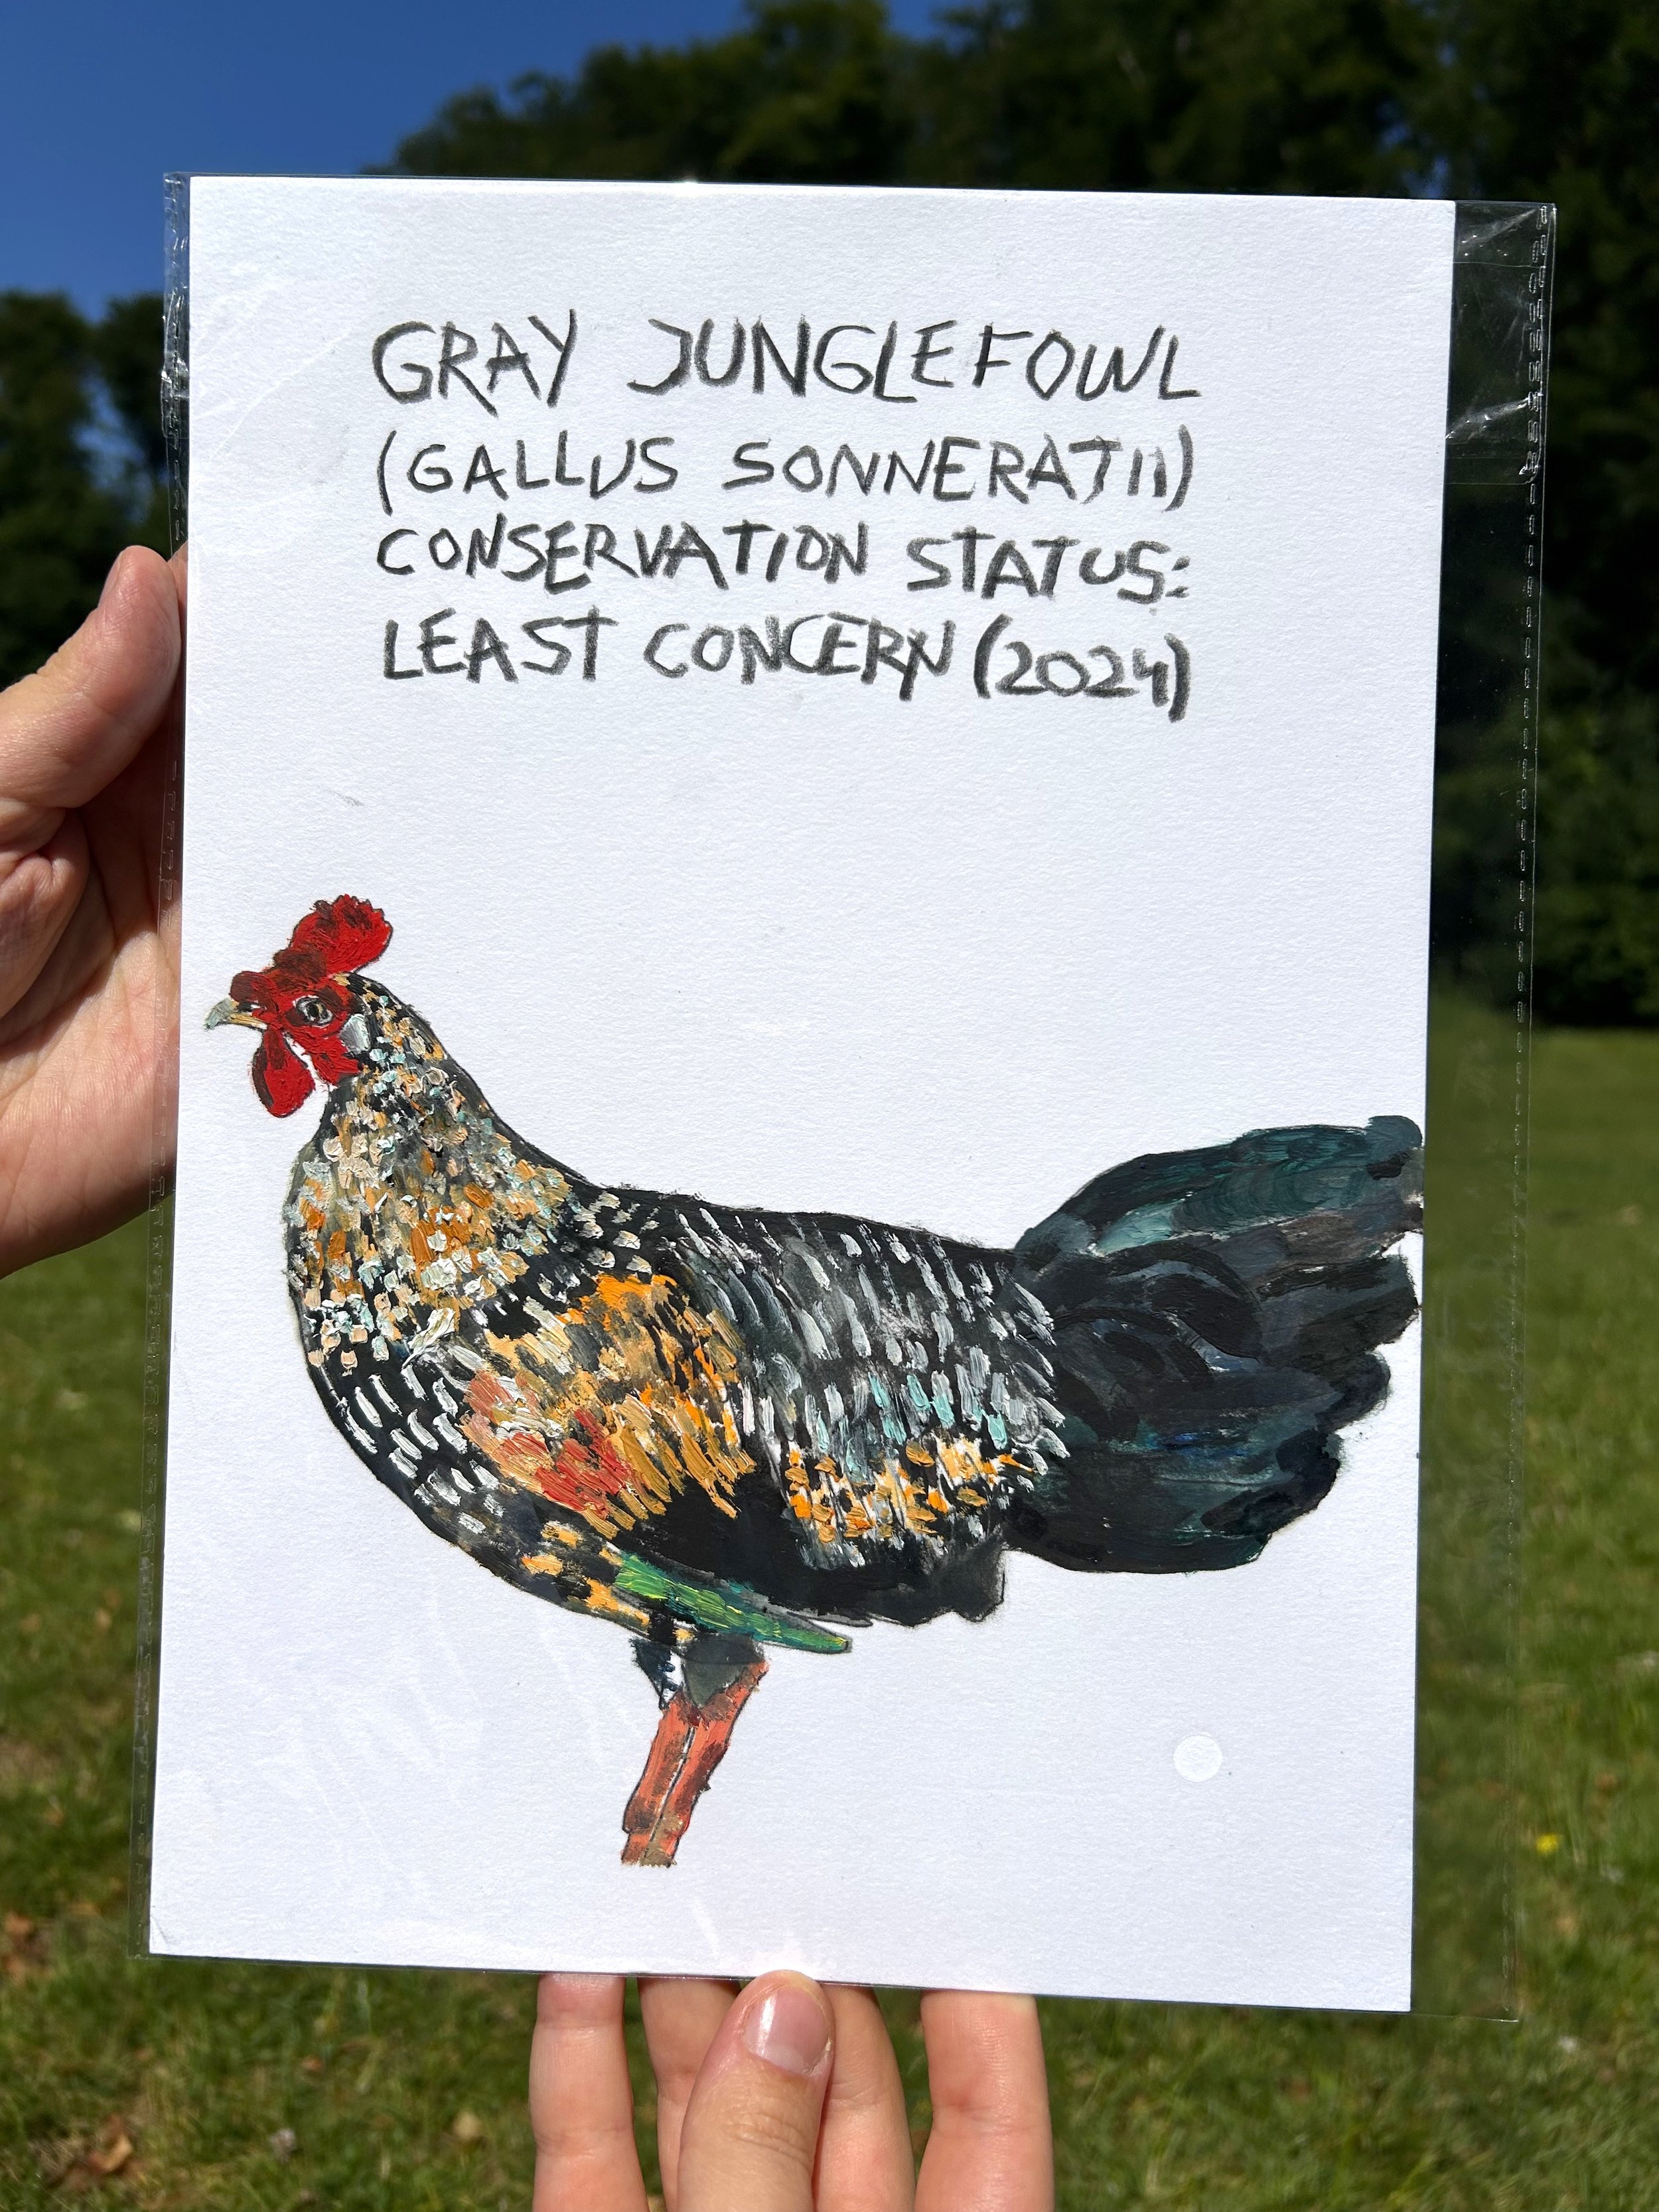 GRAY JUNGLEFOWL
(GALLUS SONNERATII)
CONSERVATION STATUS:
LEAST CONCERN (2024)